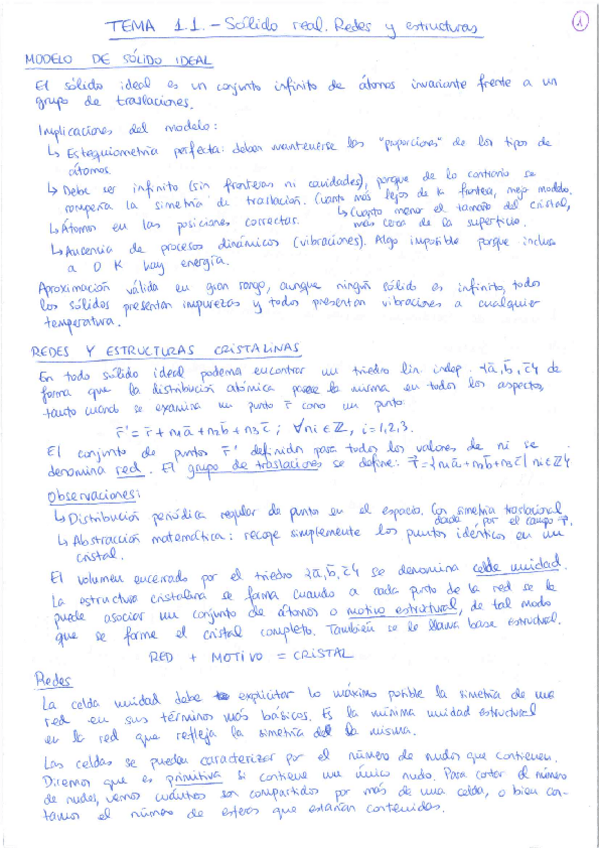 TEMA 1.1. - Sólido real. Redes y estructuras
1
MODELO DE SÓLIDO IDEAL
El sólido ideal es un conjunto infinito de átomos invariante frente a un
grupo de traslaciones.
Implicaciones del modelo:
↳ Estequiometría perfecta: deben mantenerse las "proporciones" de los tipos de
átomos.
↳ Debe ser infinito (sin fronteras ni cavidades), porque de lo contrario se
rompería la simetría de traslación. Cuanto más lejos de la frontera, mejor modelo.
↳ Cuanto menor el tamaño del cristal,
más cerca de la superficie.
↳ Átomos en las posiciones correctas.
↳ Ausencia de procesos dinámicos (vibraciones). Algo imposible porque incluso
a 0 K hay energía.
Aproximación válida en gran rango, aunque ningún sólido es infinito, todos
los sólidos presentan impurezas y todos presentan vibraciones a cualquier
temperatura.
REDES Y ESTRUCTURAS CRISTALINAS
En todo sólido ideal podemos encontrar un triedro lin. indep. {ā, b̄, c̄} de
forma que la distribución atómica parece la misma en todos los aspectos,
tanto cuando se examina un punto r̄ como un punto:
r̄' = r̄ + n₁ā + n₂b̄ + n₃c̄ ; ∀ni ∈ ℤ, i=1,2,3.
El conjunto de puntos r̄' definido para todos los valores de ni se
denomina red. El grupo de traslaciones se define: T̄={n₁ā+n₂b̄+n₃c̄ | ni∈ℤ}
Observaciones:
↳ Distribución periódica regular de puntos en el espacio. Con simetría traslacional
dada por el campo T̄.
↳ Abstracción matemática: recoge simplemente los puntos idénticos en un
cristal.
El volumen encerrado por el triedro {ā, b̄, c̄} se denomina celda unidad.
La estructura cristalina se forma cuando a cada punto de la red se le
puede asociar un conjunto de átomos o motivo estructural, de tal modo
que se forme el cristal completo. También se le llama base estructural.
RED + MOTIVO = CRISTAL
Redes
La celda unidad debe explicitar lo máximo posible la simetría de una
red en sus términos más básicos. Es la mínima unidad estructural
en la red que refleja la simetría de la misma.
Las celdas se pueden caracterizar por el número de nudos que contienen.
Diremos que es primitiva si contiene un único nudo. Para contar el número
de nudos, vemos cuántos son compartidos por más de una celda, o bien con-
tamos el número de esferas que estarían contenidas.